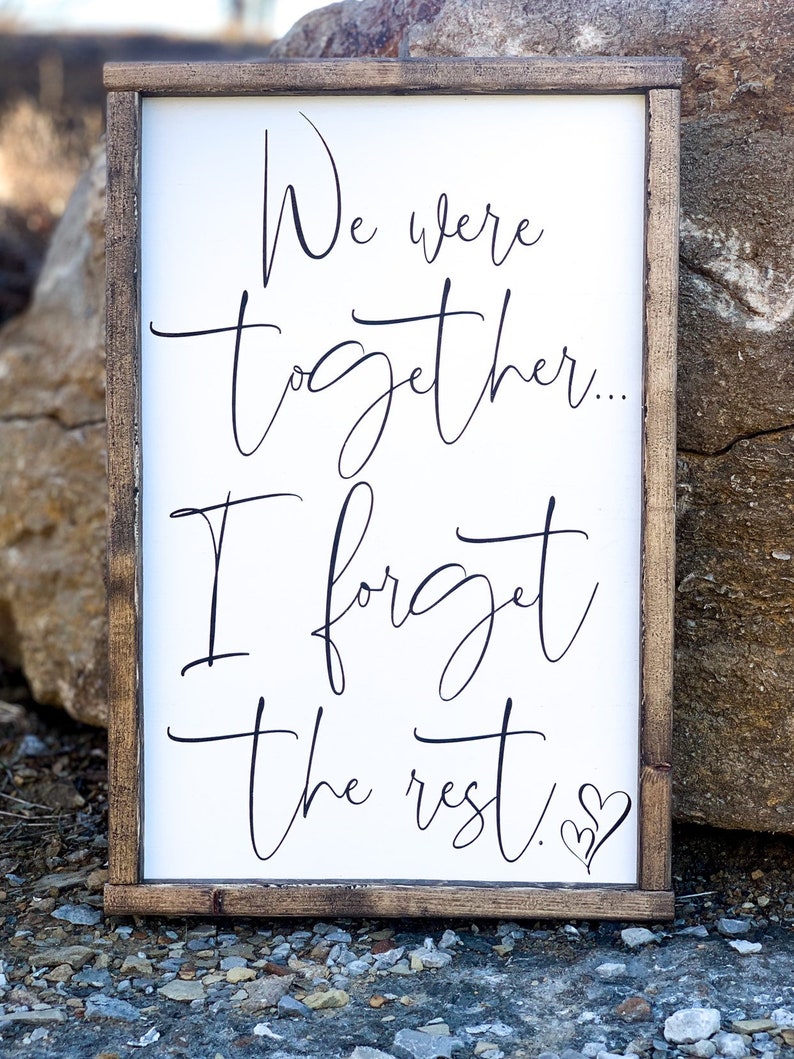 We were
together...
I forget
the rest.